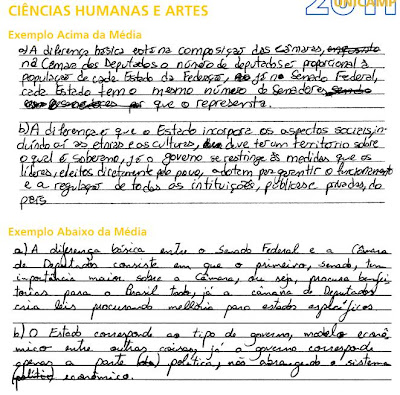 UNICAMP
2011
CIÊNCIAS HUMANAS E ARTES
Exemplo Acima da Média
a) A diferença básica está na composição das câmaras,
na Câmara dos Deputados o número de deputados é proporcional à
população de cada Estado da Federação, já no Senado Federal,
cada Estado tem o mesmo número de Senadores
que o representa.
b) A diferença é que o Estado incorpora os aspectos sociais, in-
cluindo aí as etnias e as culturas, deve ter um território sobre
o qual é soberano, já o governo se restringe às medidas que os
líderes, eleitos diretamente pelo povo, adotam para garantir o funcionamento
e a regulação de todas as instituições, públicas e privadas, do
país
Exemplo Abaixo da Média
a) A diferença básica entre o Senado Federal e a Câmara
de Deputados consiste em que o primeiro, senado, tem
importância maior sobre a Câmara, ou seja, procura benfei
torias para o Brasil todo, já a câmara de Deputados
cria leis procurando melhoria para estados específicos.
b) O Estado corresponde ao tipo de governo, modelo econô
mico entre outras coisas, já o governo corresponde
apenas a parte política, não abrangendo o sistema
econômico.